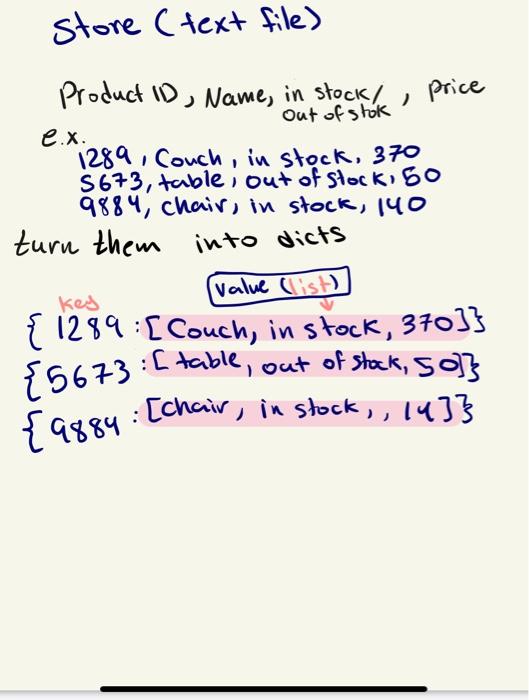 Store (text file)
Product ID, Name, in stock/ , Price
Out of stok
e.x.
1289, Couch, in stock, 370
5673, table, out of stock, 50
9884, chair, in stock, 140
turn them into dicts
value (list)
key
{ 1289 : [ Couch, in stock, 370]}
{5673 : [ table, out of stock, 50]}
{9884 : [chair, in stock, , 14]}